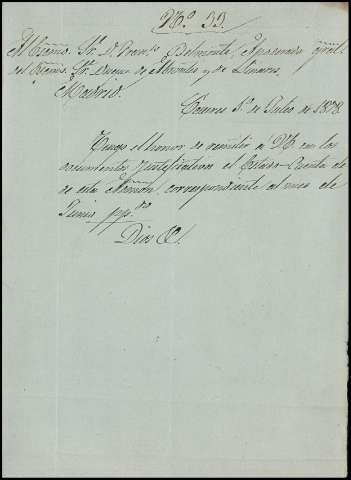 Nº 33.
Al Excmo. Sr. D. Franco. Belmonte, Apoderado gral.
del Excmo. Sr. Duque de Abrantes y de Linares.
Madrid.
Cáceres 1º de Julio de 1878.
Tengo el honor de remitir a V. con los
documentos justificativos el Estado-Cuenta de
de esta Admon, correspondiente al mes de
Junio ppdo.
Dios &.